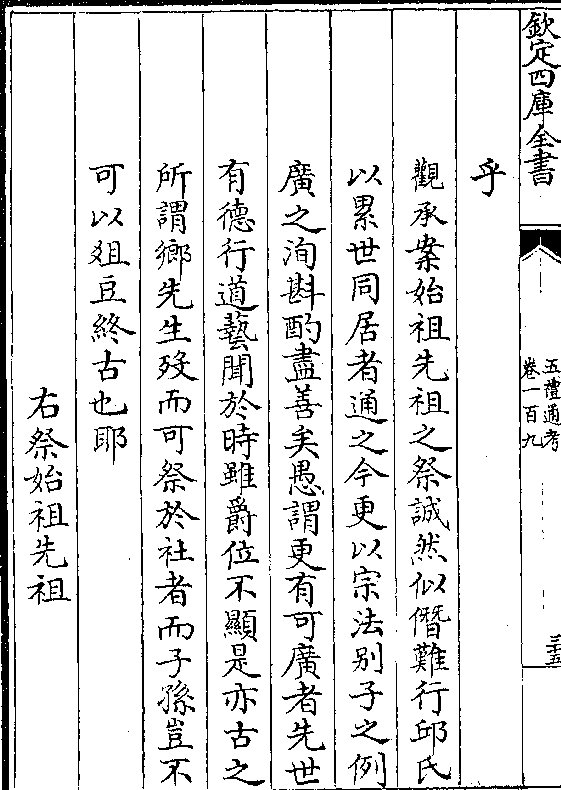 欽定四庫全書
五禮通考
卷一百九
三十五
乎
觀承案始祖先祖之祭誠然似僭難行邱氏
以累世同居者通之今更以宗法别子之例
廣之洵斟酌盡善矣愚謂更有可廣者先世
有德行道藝聞於時雖爵位不顯是亦古之
所謂鄉先生歿而可祭於社者而子孫豈不
可以俎豆終古也耶
右祭始祖先祖